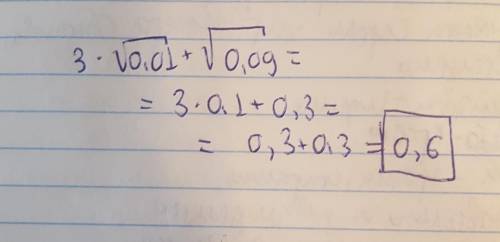 3 · √0.01 + √0,09 =
= 3 · 0.1 + 0,3 =
= 0,3 + 0.3 = 0,6